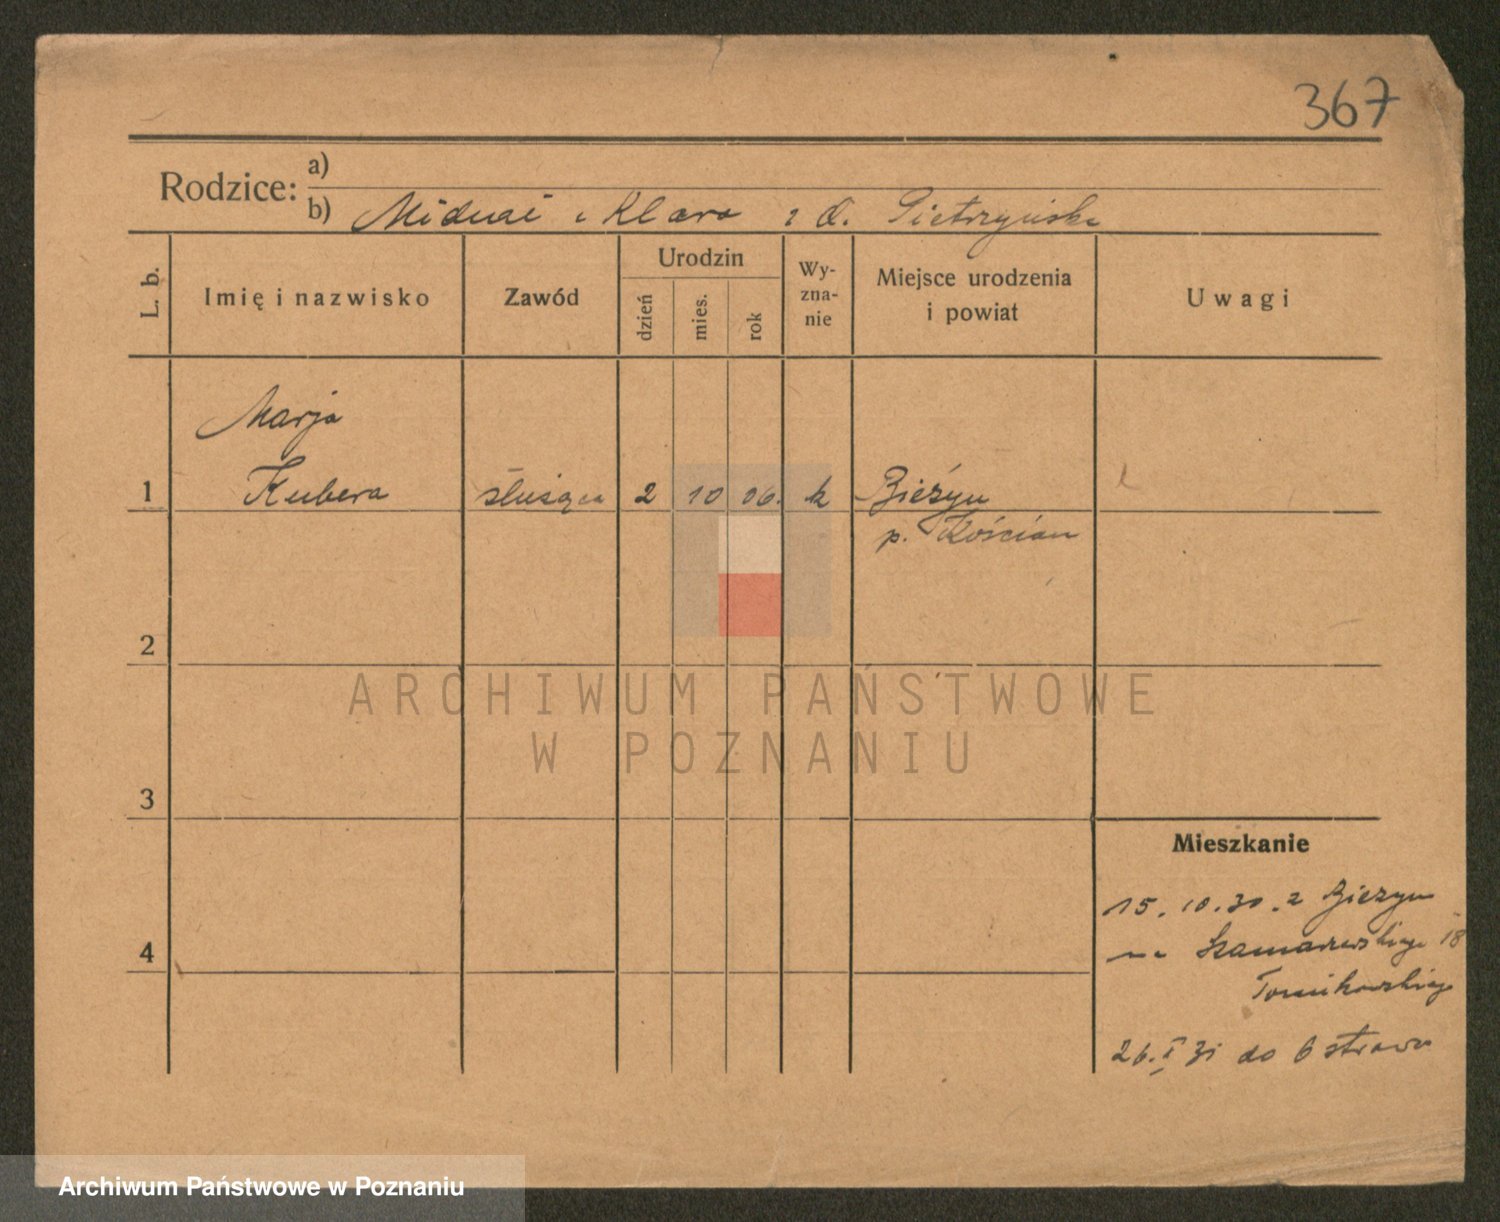 367
Rodzice: a)
b) Klara z d. Pietrzyńska
L. b. Imię i nazwisko Zawód Urodzin dzień mies. rok Wy-zna-nie Miejsce urodzenia i powiat Uwagi
Marja
1 Kubera służąca 2 10 06. k Bieżyn
p. Kościan
2
ARCHIWUM PAŃSTWOWE
W POZNANIU
3
Mieszkanie
15.10.30. z Bieżyn
4 na 18
26. I 31 do
Archiwum Państwowe w Poznaniu